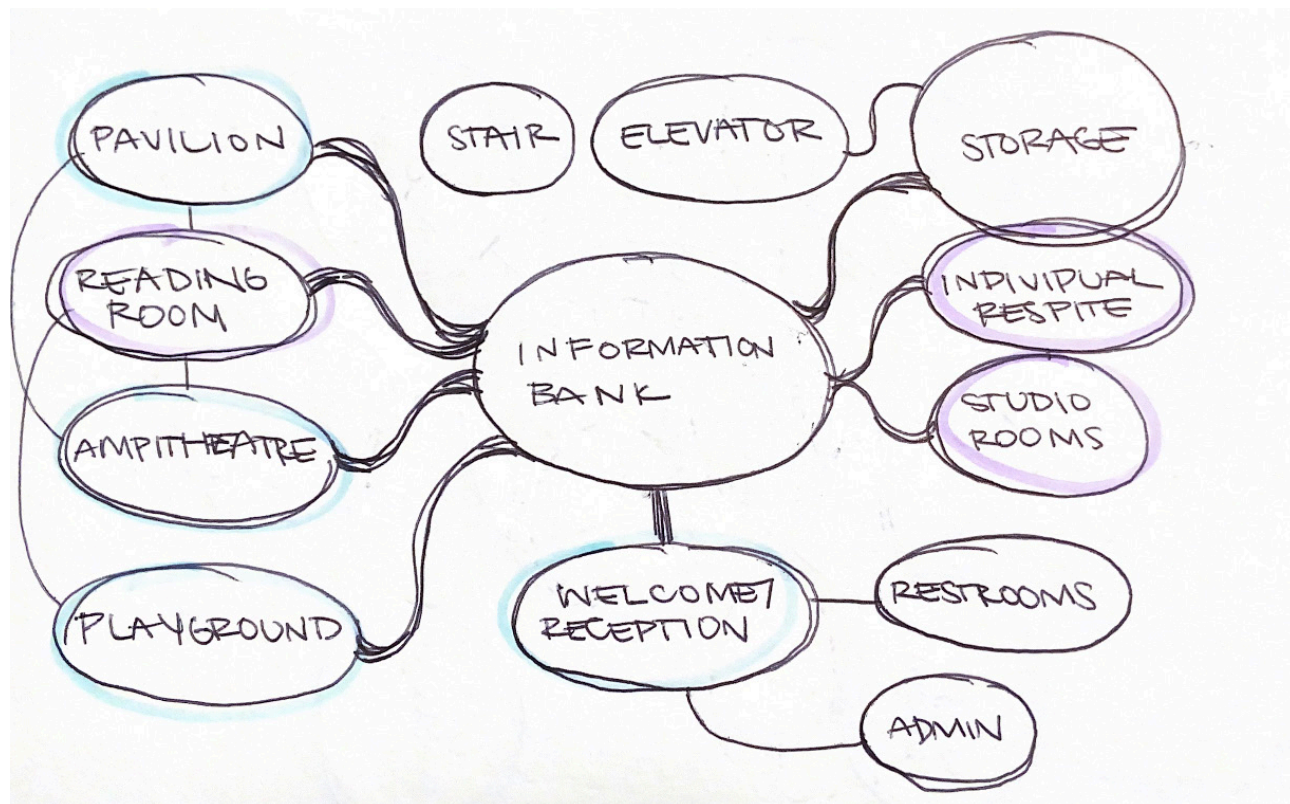 PAVILION
STAIR
ELEVATOR
STORAGE
READING
ROOM
INDIVIDUAL
RESPITE
INFORMATION
BANK
STUDIO
ROOMS
AMPITHEATRE
WELCOME/
RECEPTION
RESTROOMS
PLAYGROUND
ADMIN